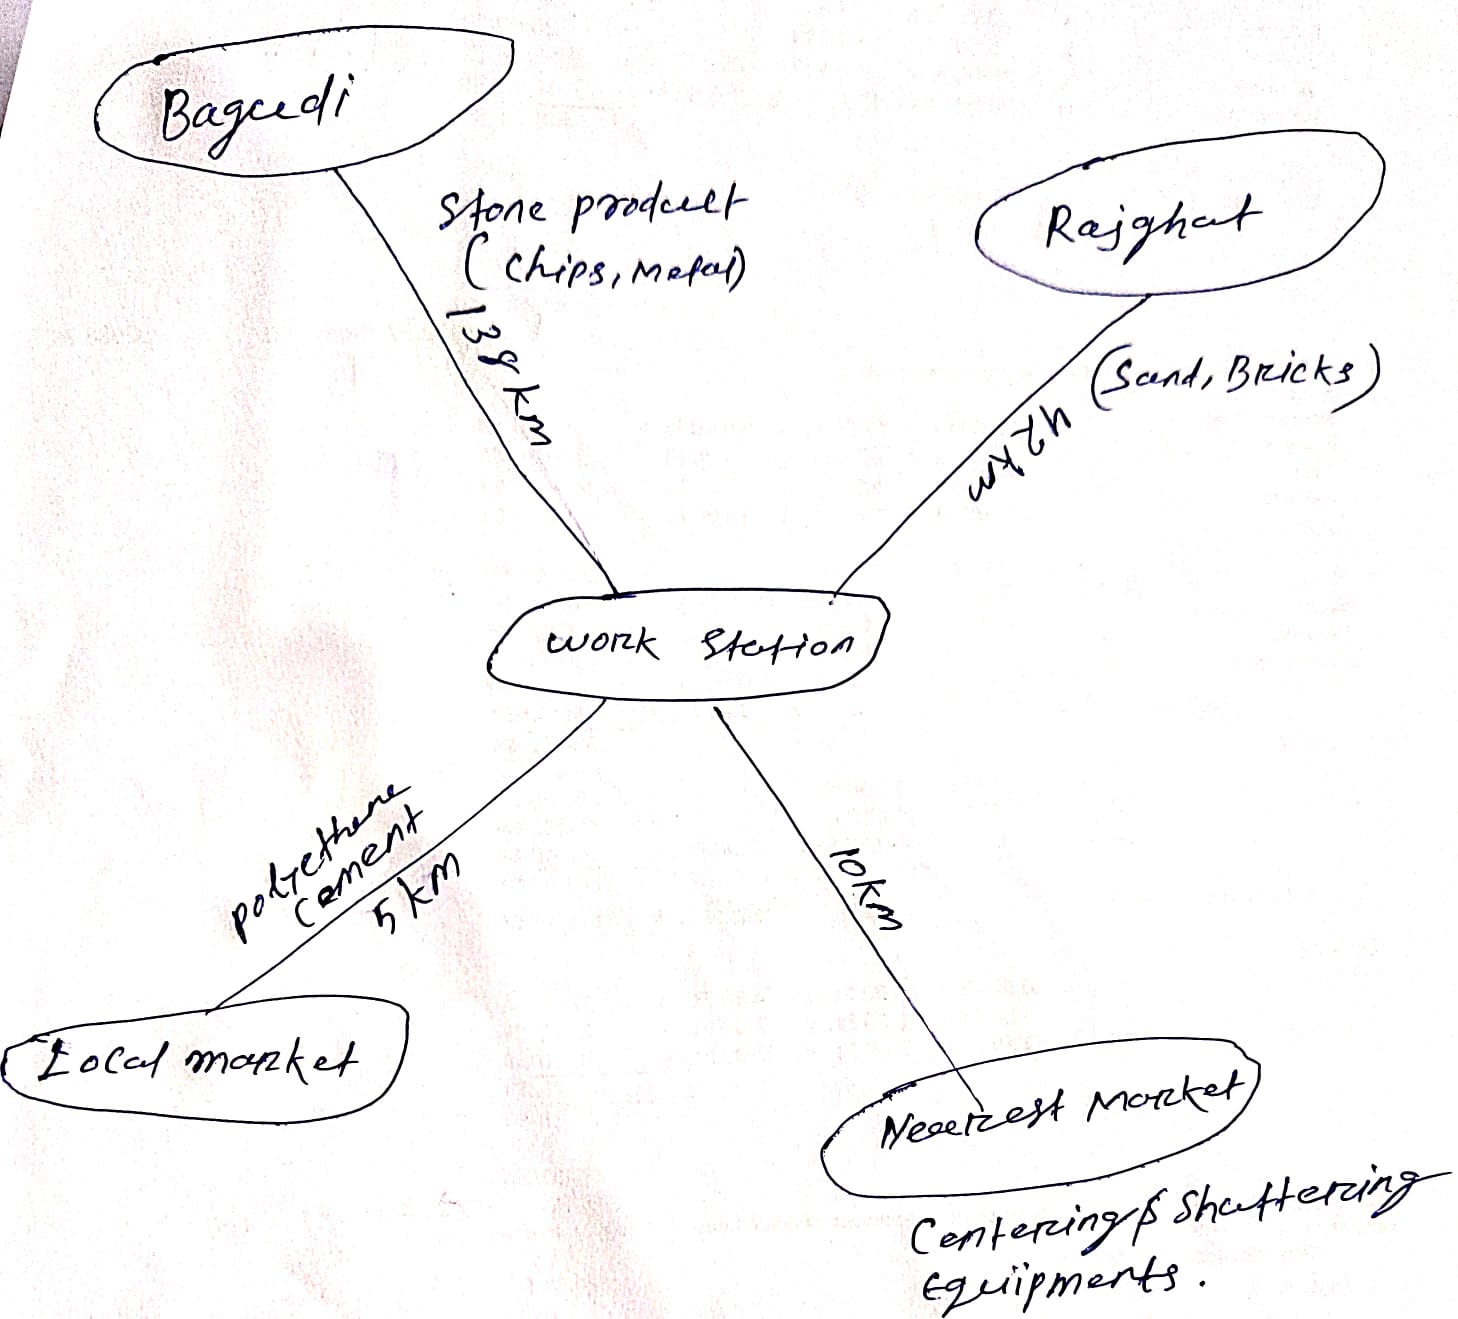 Bagudi
Stone product
(Chips, Metal)
138 km
Rajghat
(Sand, Bricks)
42 km
Work Station
polyethene
Cement
5 km
10 km
Local market
Nearest Market
Centering & Shuttering
Equipments.